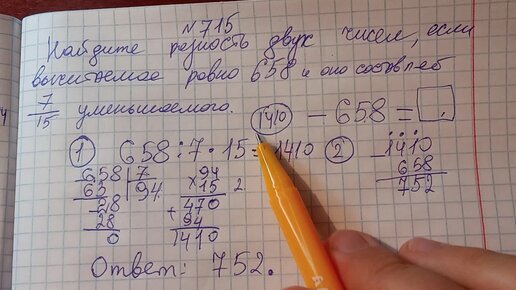 №715
Найдите разность двух чисел, если
вычитаемое равно 658 и оно составляет
7/15 уменьшаемого. 1410 − 658 = □.
① 658 : 7 · 15 = 1410 ②
658 | 7
63 | 94
−28
28
0
× 94
15
2
470
+ 94
1410
− 1410
658
752
Ответ: 752.